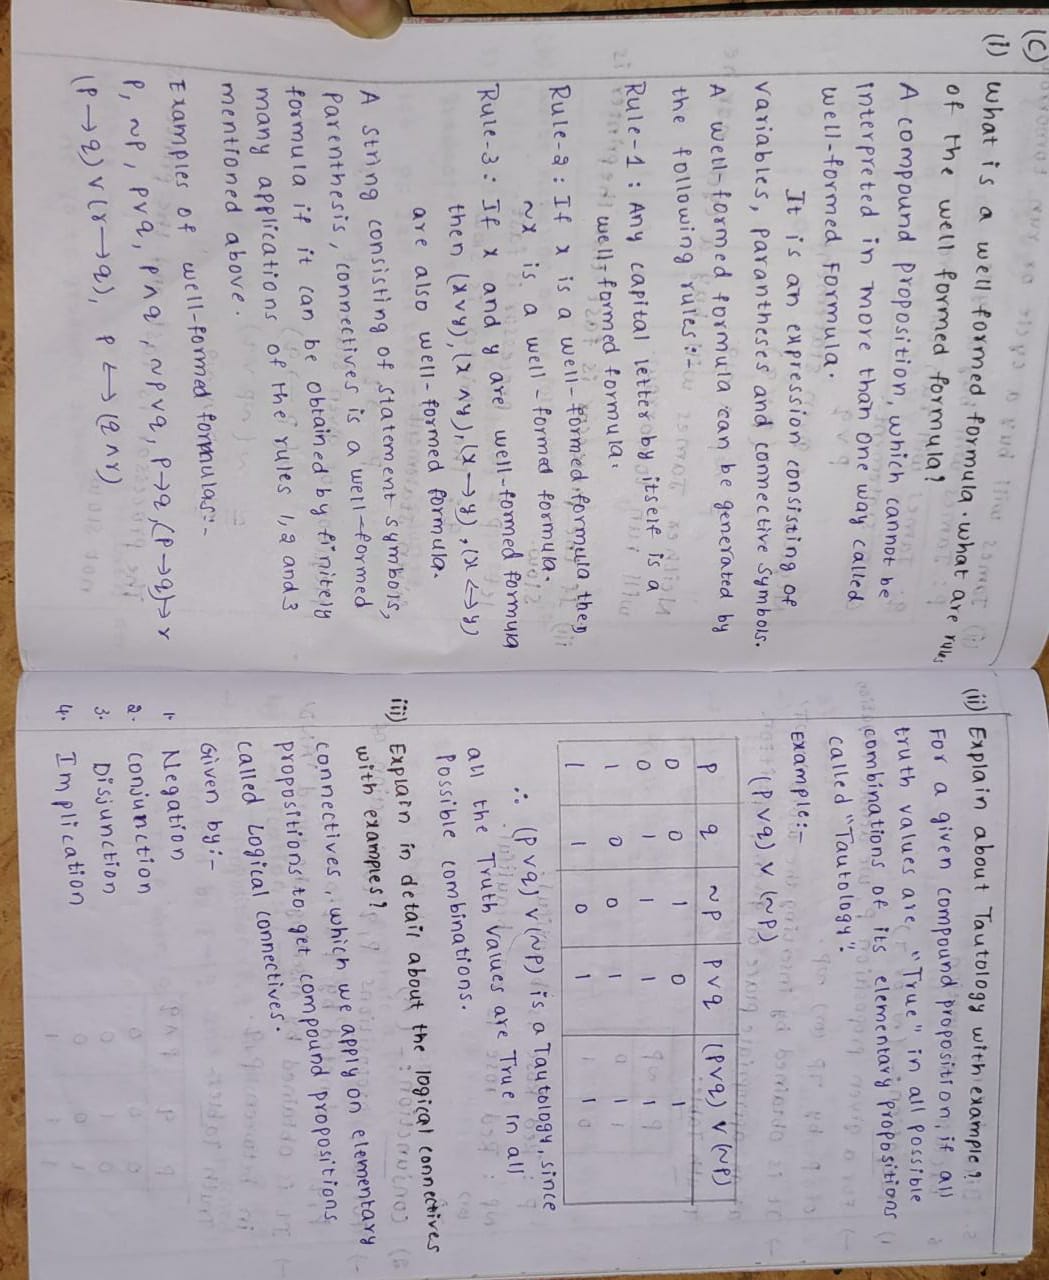 (C)
(i) What is a well formed formula. what are rules
of the well formed formula?
A compound proposition, which cannot be
interpreted in more than one way called
well-formed Formula.
It is an expression consisting of
variables, parantheses and connective symbols.
A well-formed formula can be generated by
the following rules:-
Rule-1: Any capital letter by itself is a
well-formed formula.
Rule-2: If x is a well-formed formula then
~x is a well-formed formula.
Rule-3: If x and y are well-formed formula
then (x∨y), (x∧y), (x→y), (x↔y)
are also well-formed formula.
A string consisting of statement symbols,
parenthesis, connectives is a well-formed
formula if it can be obtained by finitely
many applications of the rules 1, 2 and 3
mentioned above.
Examples of well-formed formulas:-
P, ~P, P∨q, P∧q, ~P∨q, P→q, (P→q)→r
(P→q)∨(r→q), P↔(q∧r)
(ii) Explain about Tautology with example?
For a given compound proposition, if all
truth values are "True" in all possible
combinations of its elementary propositions
called "Tautology".
Example:-
(P∨q)∨(~P)
P q ~P P∨q (P∨q)∨(~P)
0 0 1 0 1
0 1 1 1 1
1 0 0 1 1
1 1 0 1 1
∴ (P∨q)∨(~P) is a Tautology, since
all the Truth values are True in all
Possible combinations.
iii) Explain in detail about the logical connectives
with examples?
connectives which we apply on elementary
propositions to get compound propositions
called Logical connectives.
Given by:-
1. Negation
2. conjunction
3. Disjunction
4. Implication